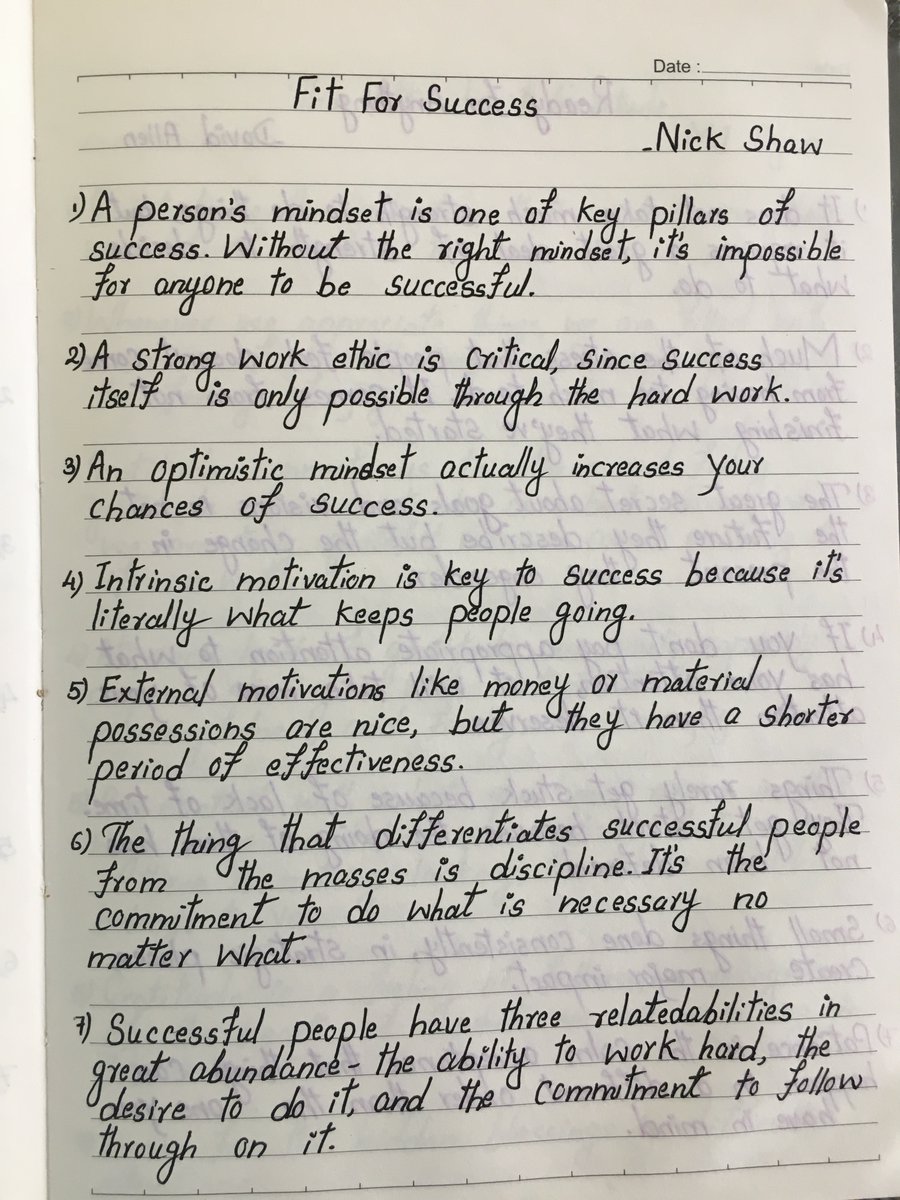 Date :
Fit For Success
-Nick Shaw
1) A person's mindset is one of key pillars of
success. Without the right mindset, it's impossible
for anyone to be successful.
2) A strong work ethic is critical, since success
itself is only possible through the hard work.
3) An optimistic mindset actually increases your
chances of success.
4) Intrinsic motivation is key to success because it's
literally what keeps people going.
5) External motivations like money or material
possessions are nice, but they have a shorter
period of effectiveness.
6) The thing that differentiates successful people
from the masses is discipline. It's the
commitment to do what is necessary no
matter what.
7) Successful people have three relatedabilities in
great abundance - the ability to work hard, the
desire to do it, and the commitment to follow
through on it.